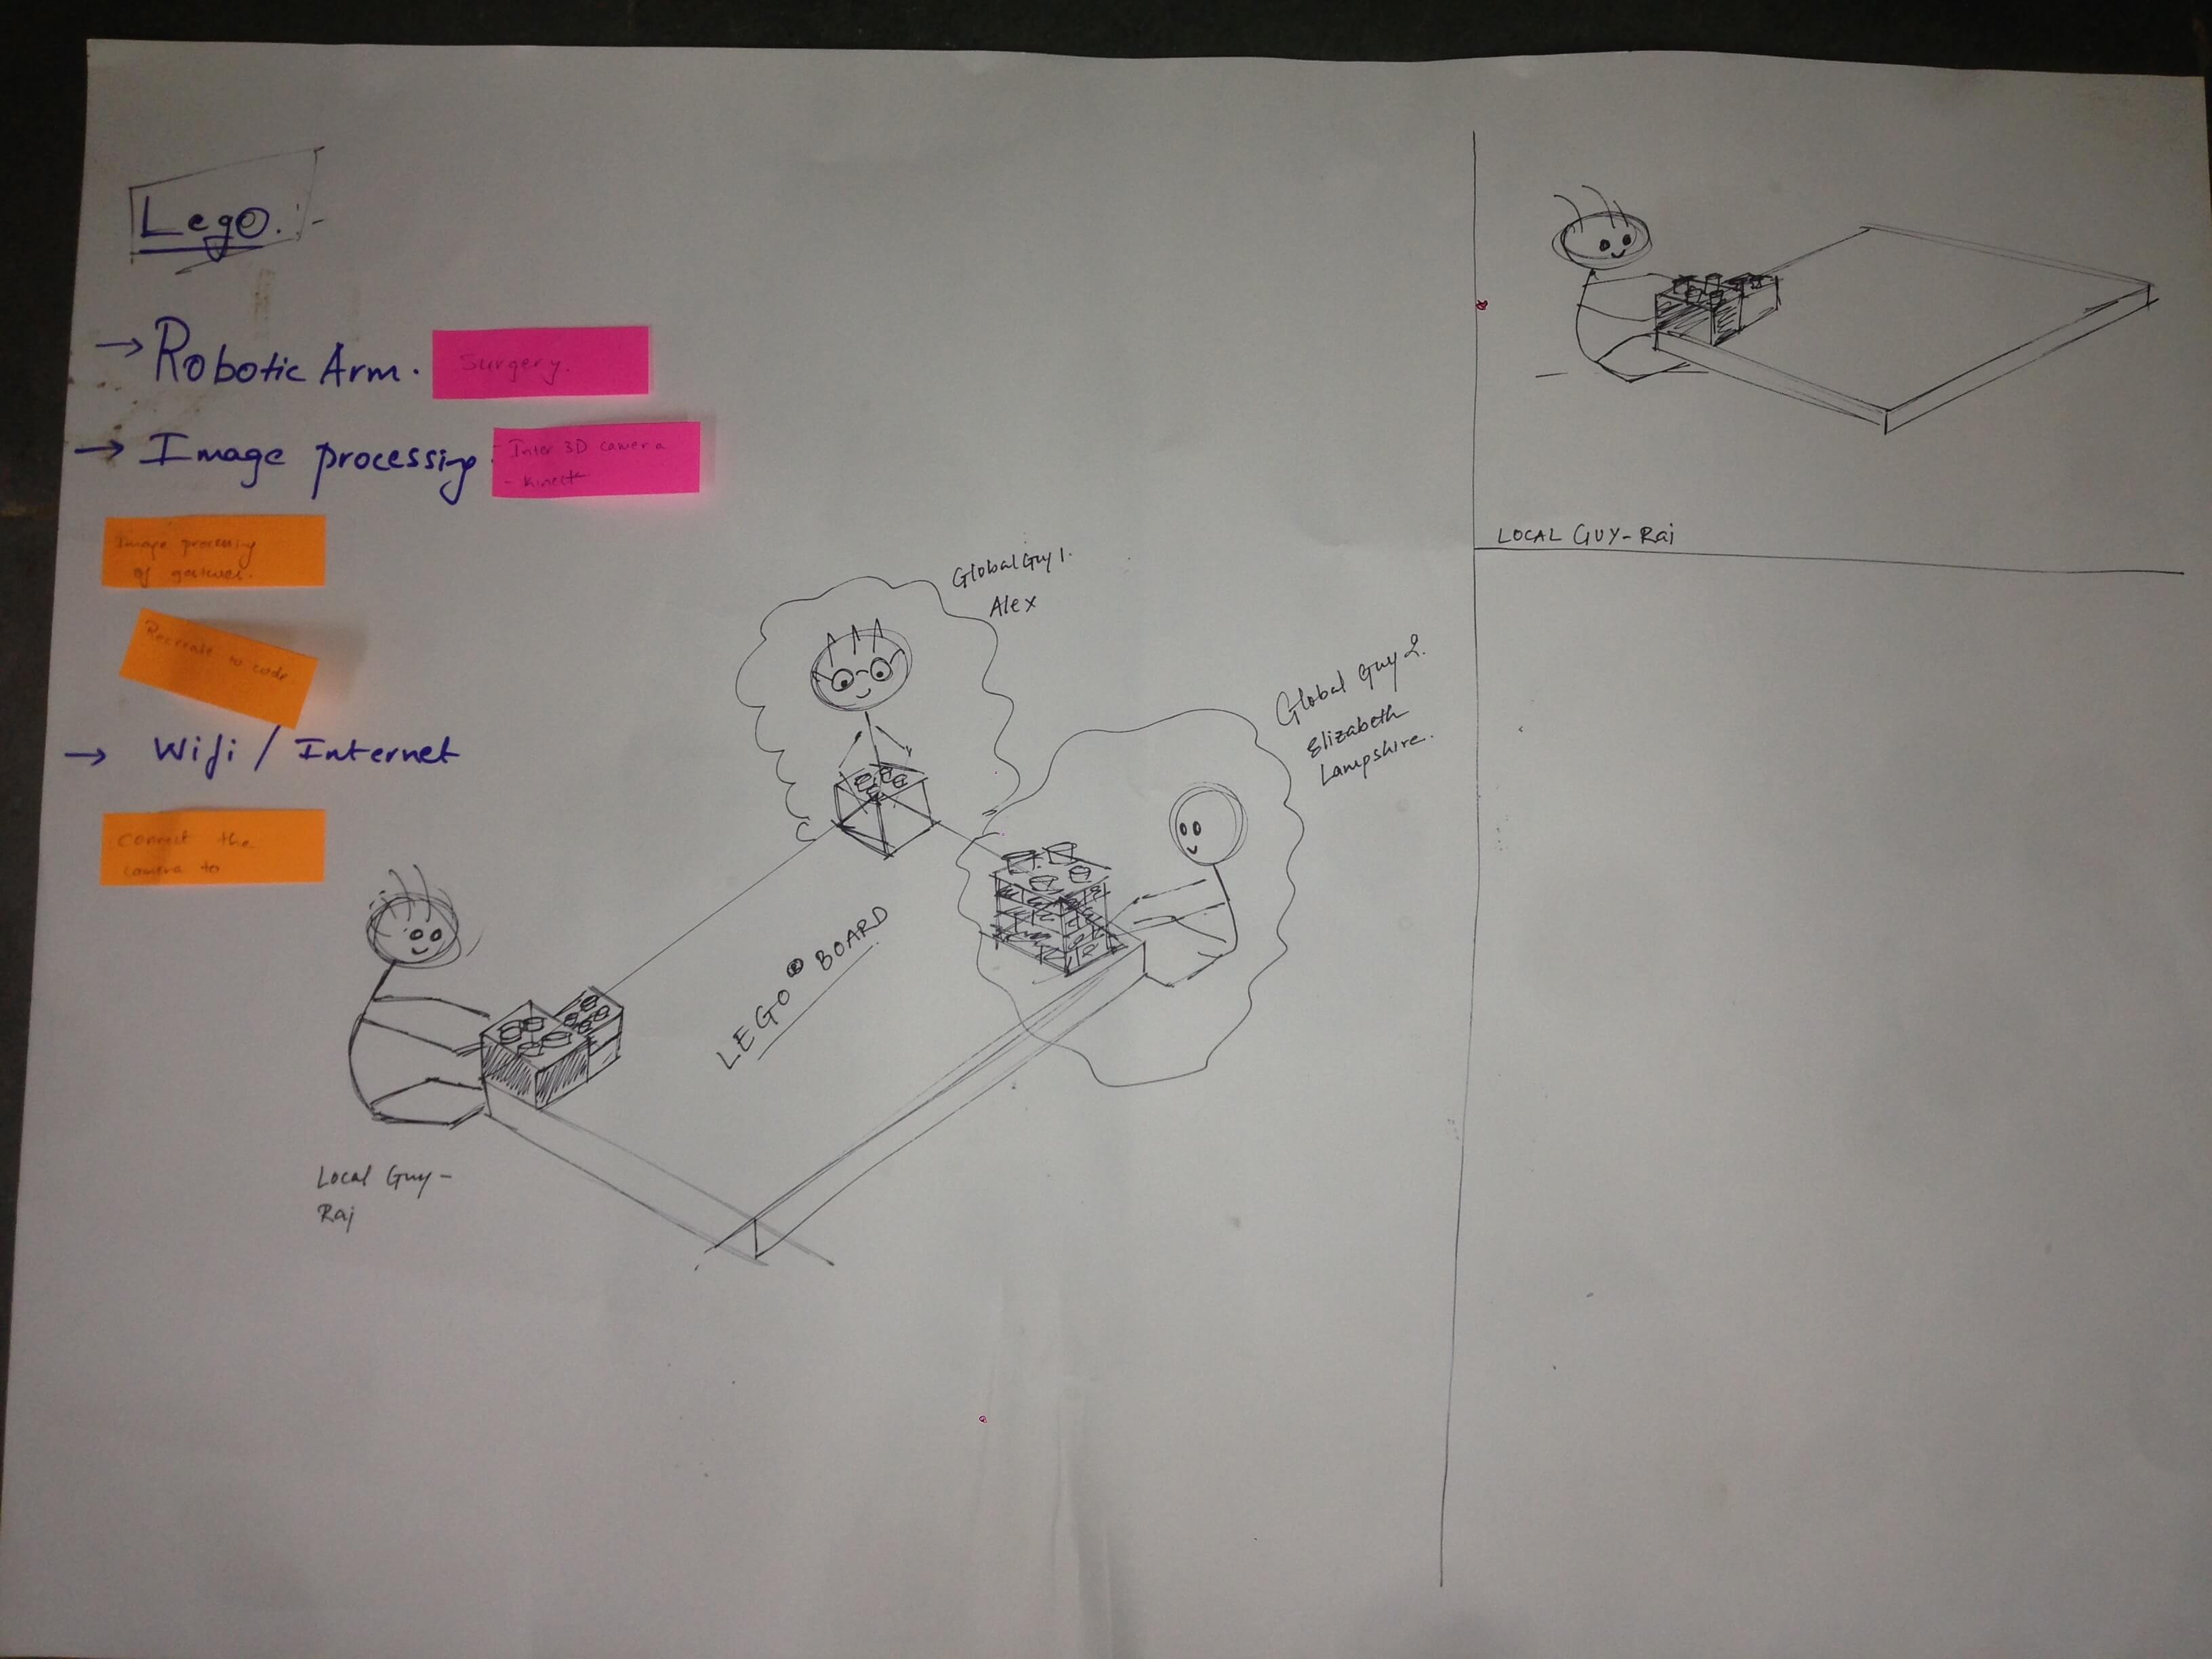 Lego.
→ Robotic Arm.
Surgery.
→ Image processing
Inter 3D camera
- Kinect
Image processing
of gestures.
Recreate to code
→ Wifi / Internet
Connect the
camera to
Global Guy 1.
Alex
Global Guy 2.
Elizabeth
Lampshire.
LEGO® BOARD
Local Guy-
Raj
LOCAL GUY-Raj